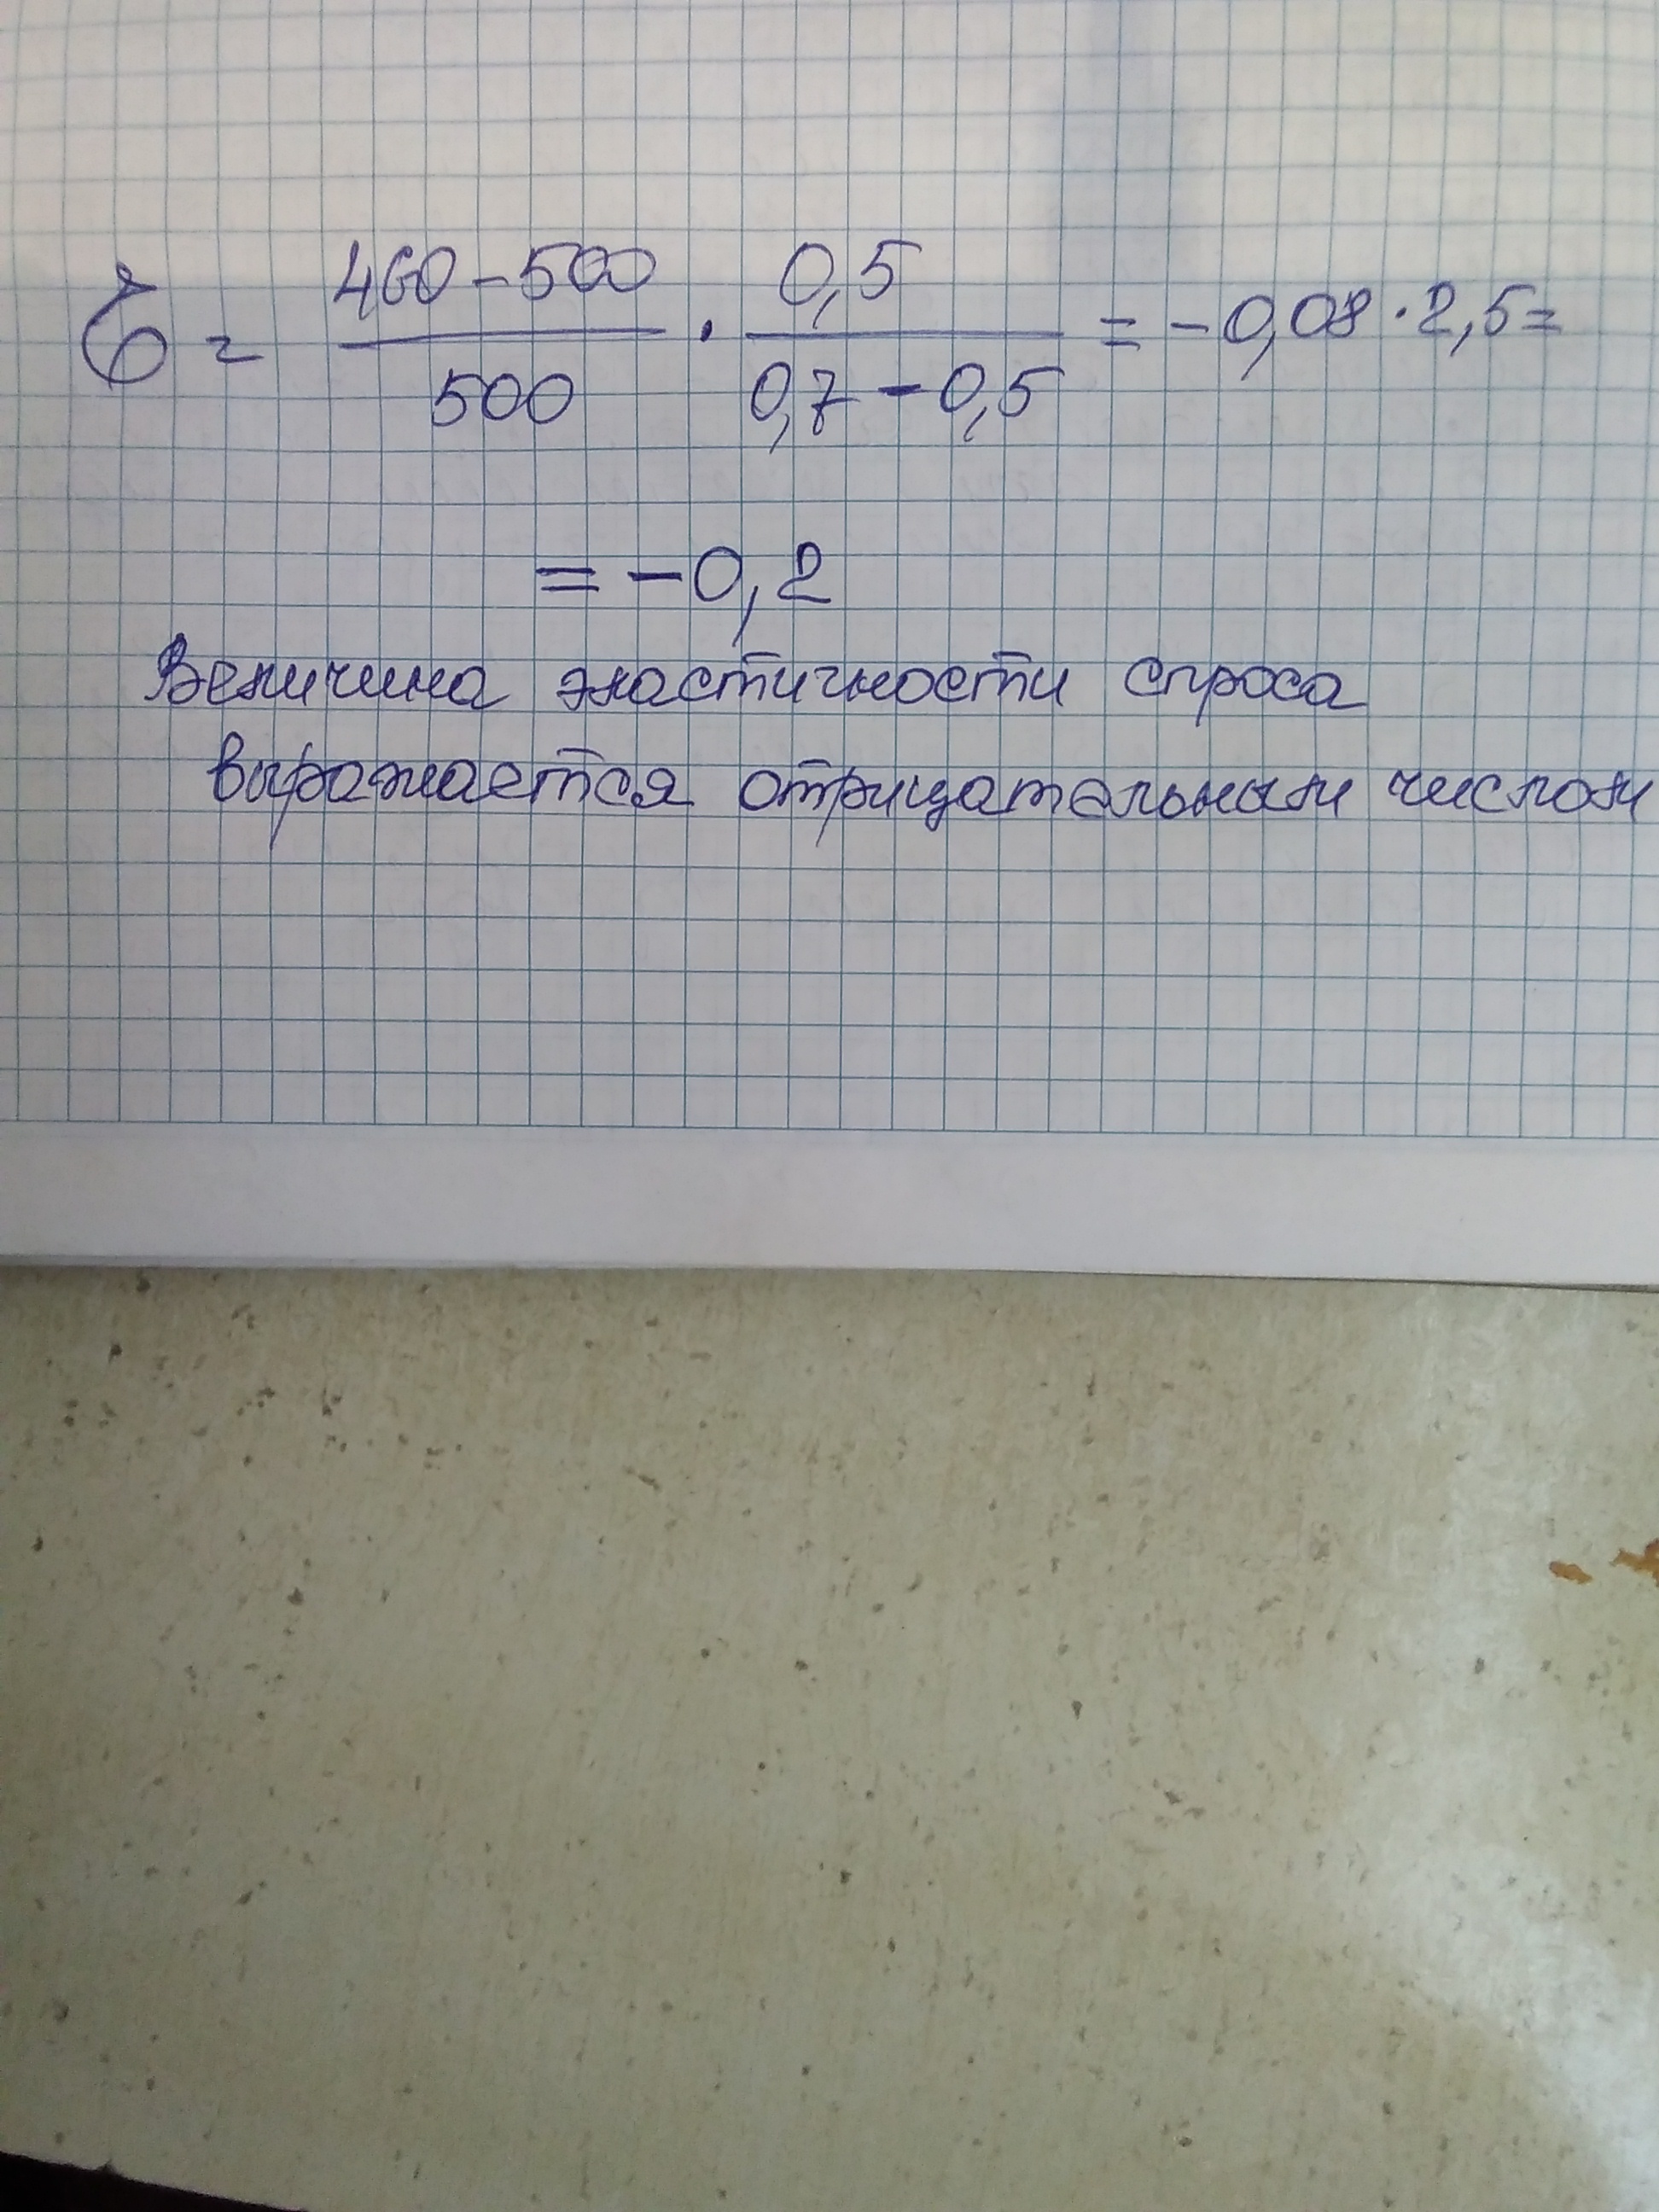 E = 460 - 500 / 500 · 0,5 / 0,7 - 0,5 = - 0,08 · 2,5 =
= - 0,2
Величина эластичности спроса
выражается отрицательным числом